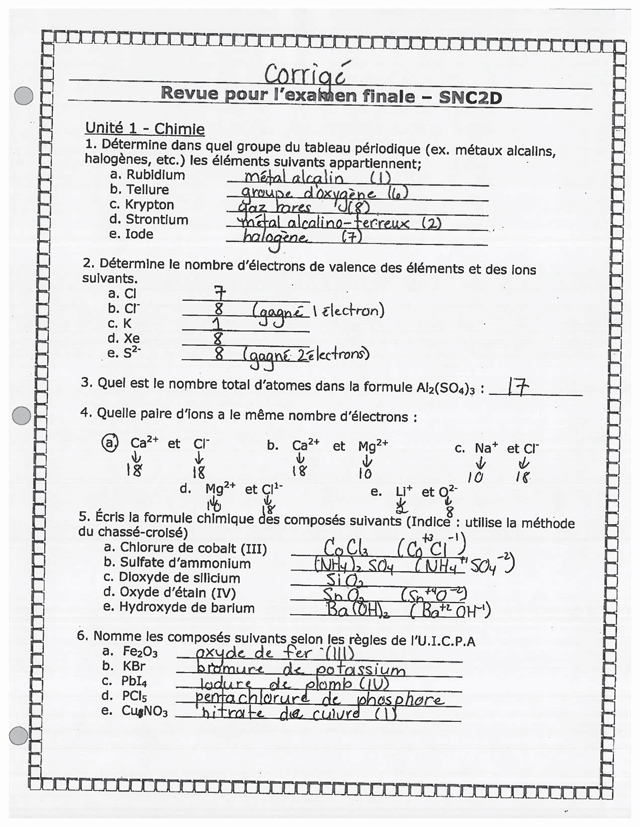 Corrigé
Revue pour l'examen finale – SNC2D
Unité 1 - Chimie
1. Détermine dans quel groupe du tableau périodique (ex. métaux alcalins,
halogènes, etc.) les éléments suivants appartiennent;
a. Rubidium métal alcalin (1)
b. Tellure groupe d'oxygène (6)
c. Krypton gaz rares (8)
d. Strontium métal alcalino-terreux (2)
e. Iode halogène (7)
2. Détermine le nombre d'électrons de valence des éléments et des ions
suivants.
a. Cl 7
b. Cl⁻ 8 (gagné 1 électron)
c. K 1
d. Xe 8
e. S²⁻ 8 (gagné 2 électrons)
3. Quel est le nombre total d'atomes dans la formule Al₂(SO₄)₃ : 17
4. Quelle paire d'ions a le même nombre d'électrons :
a. Ca²⁺ et Cl⁻ b. Ca²⁺ et Mg²⁺ c. Na⁺ et Cl⁻
18 18 18 10 10 18
d. Mg²⁺ et Cl¹⁻ e. Li⁺ et O²⁻
10 18 2 8
5. Écris la formule chimique des composés suivants (Indice : utilise la méthode
du chassé-croisé)
a. Chlorure de cobalt (III) CoCl₃ (Co⁺³Cl⁻¹)
b. Sulfate d'ammonium (NH₄)₂SO₄ (NH₄⁺¹SO₄⁻²)
c. Dioxyde de silicium SiO₂
d. Oxyde d'étain (IV) SnO₂ (Sn⁺⁴O⁻²)
e. Hydroxyde de barium Ba(OH)₂ (Ba⁺²OH⁻¹)
6. Nomme les composés suivants selon les règles de l'U.I.C.P.A
a. Fe₂O₃ oxyde de fer (III)
b. KBr bromure de potassium
c. PbI₄ Iodure de plomb (IV)
d. PCl₅ pentachlorure de phosphore
e. CuNO₃ nitrate de cuivre (I)